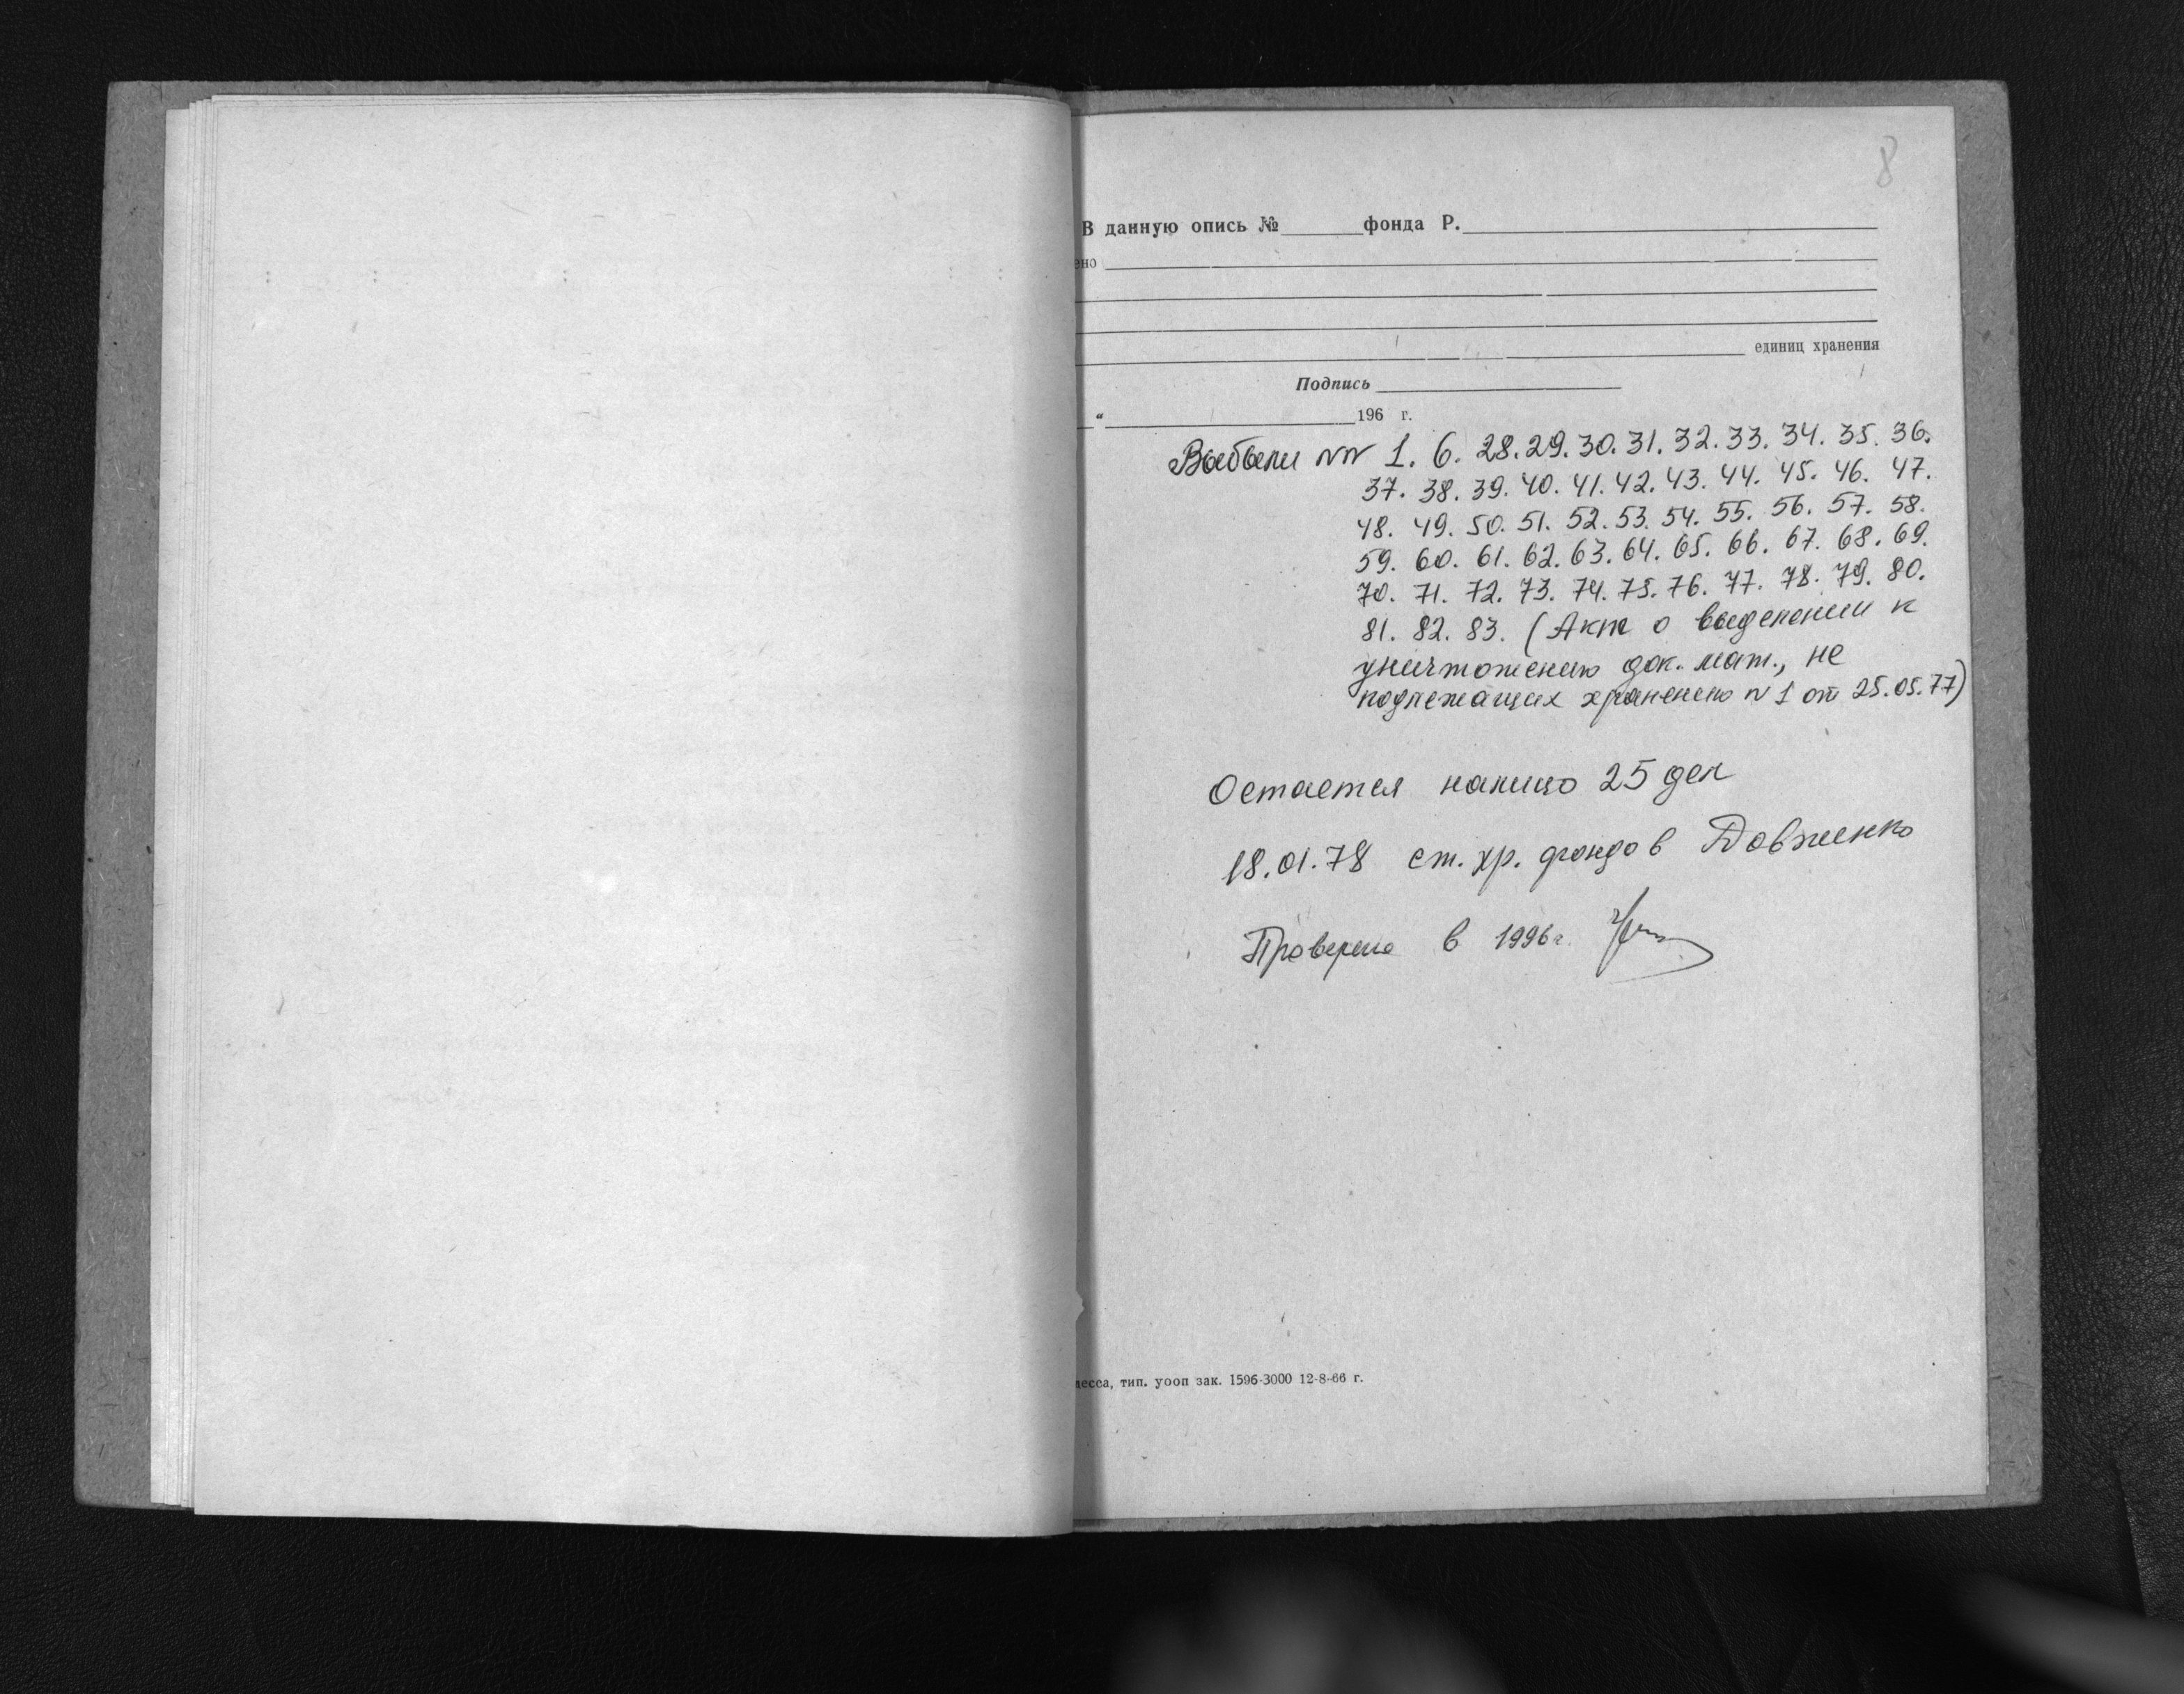 8
В данную опись № фонда Р.
ено
единиц хранения
Подпись
" 196 г.
Выбыли NN 1. 6. 28. 29. 30. 31. 32. 33. 34. 35. 36.
37. 38. 39. 40. 41. 42. 43. 44. 45. 46. 47.
48. 49. 50. 51. 52. 53. 54. 55. 56. 57. 58.
59. 60. 61. 62. 63. 64. 65. 66. 67. 68. 69.
70. 71. 72. 73. 74. 75. 76. 77. 78. 79. 80.
81. 82. 83. (Акт о выделении к
уничтожению док. мат., не
подлежащих хранению N 1 от 25.05.77)
Остается налицо 25 дел
18.01.78 ст. хр. фондов Довженко
Проверено в 1996 г.
десса, тип. уооп зак. 1596-3000 12-8-66 г.